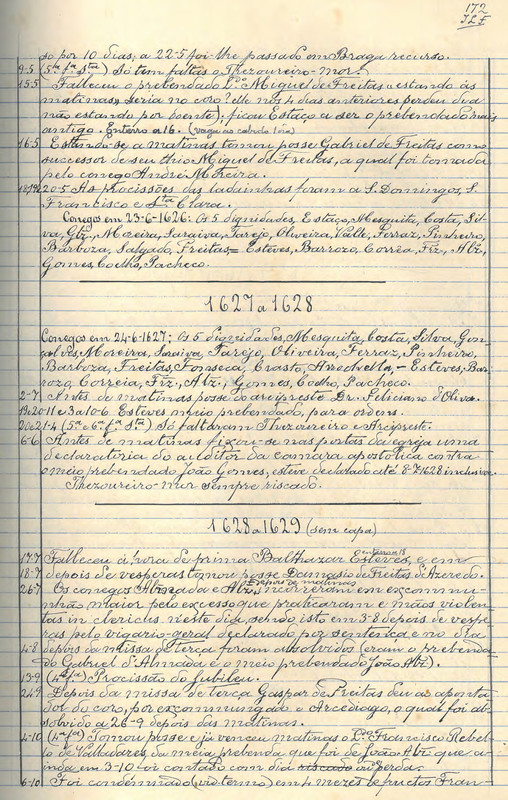 172
só por 10 dias; a 22-5 foi-lhe passado em Braga recurso.
9-5 (5ª fª Sta) Só tem faltas o Thezoureiro-mor.
15-5 Falleceu o prebendado Ldo Miguel de Freitas, estando ás
matinas, seria no coro? elle nos 4 dias anteriores perdeu dia
não estando por doente); ficou Estaço a ser o prebendado mais
antigo. Enterro a 16.
16-5 Estando-se a matinas tomou posse Gabriel de Freitas como
successor de seu thio Miguel de Freitas, a qual foi tomada
pelo conego André Moreira.
18,19,20-5 As procissões das ladainhas foram a S. Domingos, S.
Francisco e Sta Clara.
Conegos em 23-6-1626: Os 5 dignidades, Estaço, Mesquita, Costa, Sil-
va, Glz, Moreira, Saraiva, Farejo, Oliveira, Valle, Ferraz, Pinheiro,
Barboza, Salgado, Freitas, = Esteves, Barrozo, Corrêa, Frz., Abz.,
Gomes, Coelho, Pacheco.
1627 a 1628
Conegos em 24-6-1627; Os 5 dignidades, Mesquita, Costa, Silva, Gon-
çalves, Moreira, Saraiva, Farejo, Oliveira, Ferraz, Pinheiro,
Barboza, Freitas, Fonseca, Erasto, Arrochella, - Esteves, Bar-
rozo, Correia, Frz., Abz., Gomes, Coelho, Pacheco.
2-7 Antes de matinas posse do arcipreste Dr. Feliciano d'Oliva.
19 e 20-11 e 3 a 10-6. Esteves meio prebendado, para ordens.
20 e 21-4 (5ª e 6ª fª Sta) Só faltaram Thezoureiro e Arcipreste.
6-6 Antes de matinas fixou-se nas portas da egreja uma
declaratoria do auditor da camara apostolica contra
o meio prebendado João Gomes, esteve declarado até 8-7-1628 inclusive.
Thezoureiro-mor sempre riscado.
1628 a 1629 (sem capa)
17-7 Falleceu á hora de prima Balthazar Esteves, enterro a 18 e em
18-7 depois de vesperas tomou posse Damasio de Freitas d'Azevedo.
26-7 Os conegos Almada e Abz., depois de matinas incorreram em excommu-
nhão maior pelo excesso que praticaram e mãos violen-
tas in clericus neste dia, sendo isto em 3-8 depois de vespe-
ras pelo vigario-geral declarado por sentença, e no dia
4-8 depois da missa de terça foram absolvidos (eram o prebenda-
do Gabriel d'Almada e o meio prebendado João Abz.).
13-9 (4ª fª) Procissão do Jubileu.
24-9 Depois da missa de terça Gaspar de Freitas deu ao aponta-
dor do coro, por excommungado o Arcediago, o qual foi ab-
solvido a 26-9 depois das matinas.
4-10 (4ª fª) Tomou posse e já venceu matinas o Ldo Francisco Rebel-
lo de Valladares, da meia prebenda que foi de João Abz. que a-
inda em 3-10 foi contado com dia riscado ou perda.
6-10 Foi condemnado (vid. termo) em 4 mezes de fructos Fran-